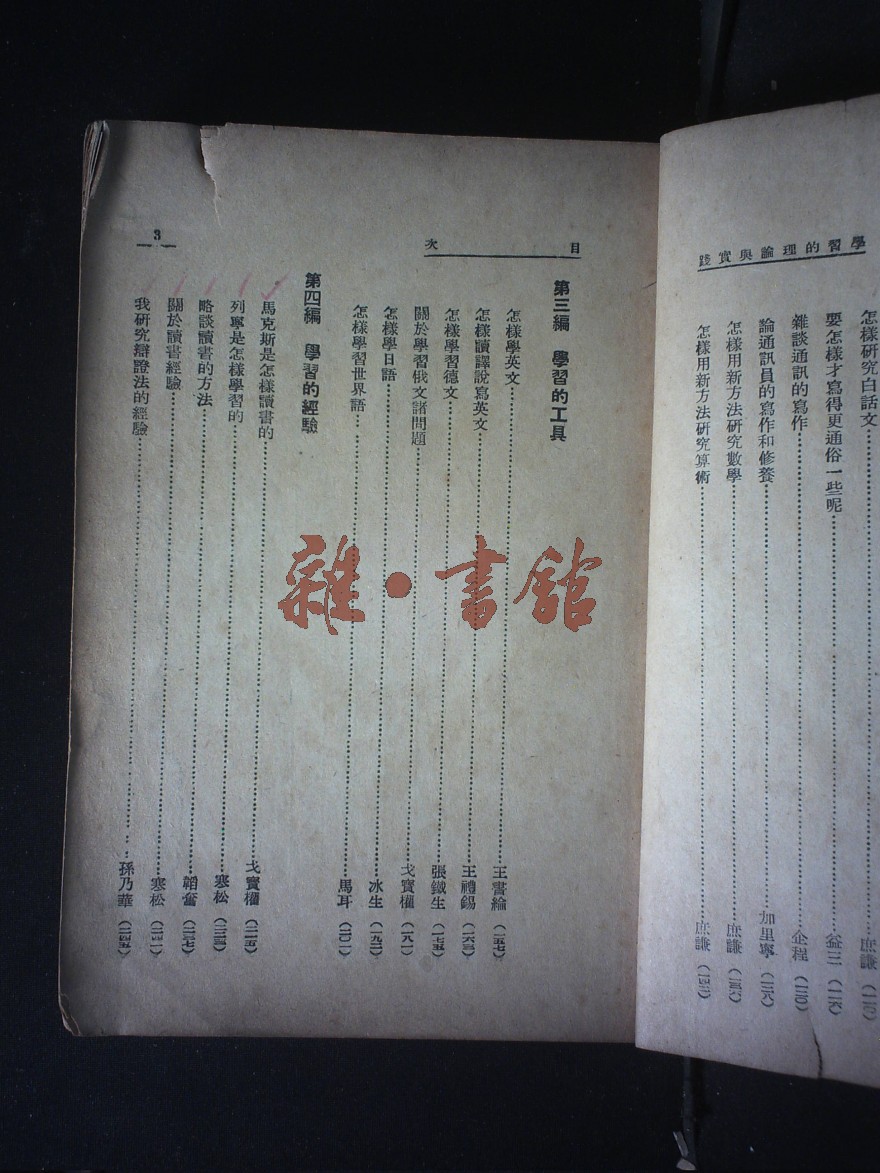 學習的理論與實踐
怎樣研究白話文 庶謙
要怎樣才寫得更通俗一些呢 益三 (一一六)
雜談通訊的寫作 企程 (一二〇)
論通訊員的寫作和修養 加里寧 (一二六)
怎樣用新方法研究數學 庶謙
怎樣用新方法研究算術 庶謙
目次
第三編 學習的工具
怎樣學英文 王書綸 (一五七)
怎樣讀譯說寫英文 王禮錫 (一六三)
怎樣學習德文 張鐵生 (一七五)
關於學習俄文諸問題 戈寶權 (一八一)
怎樣學日語 冰生
怎樣學習世界語 馬耳 (二〇一)
第四編 學習的經驗
馬克斯是怎樣讀書的 戈寶權 (二一五)
列寧是怎樣學習的 寒松
略談讀書的方法 韜奮 (二三七)
關於讀書經驗 寒松
我研究辯證法的經驗 孫乃華 (二四五)
3
雜·書館